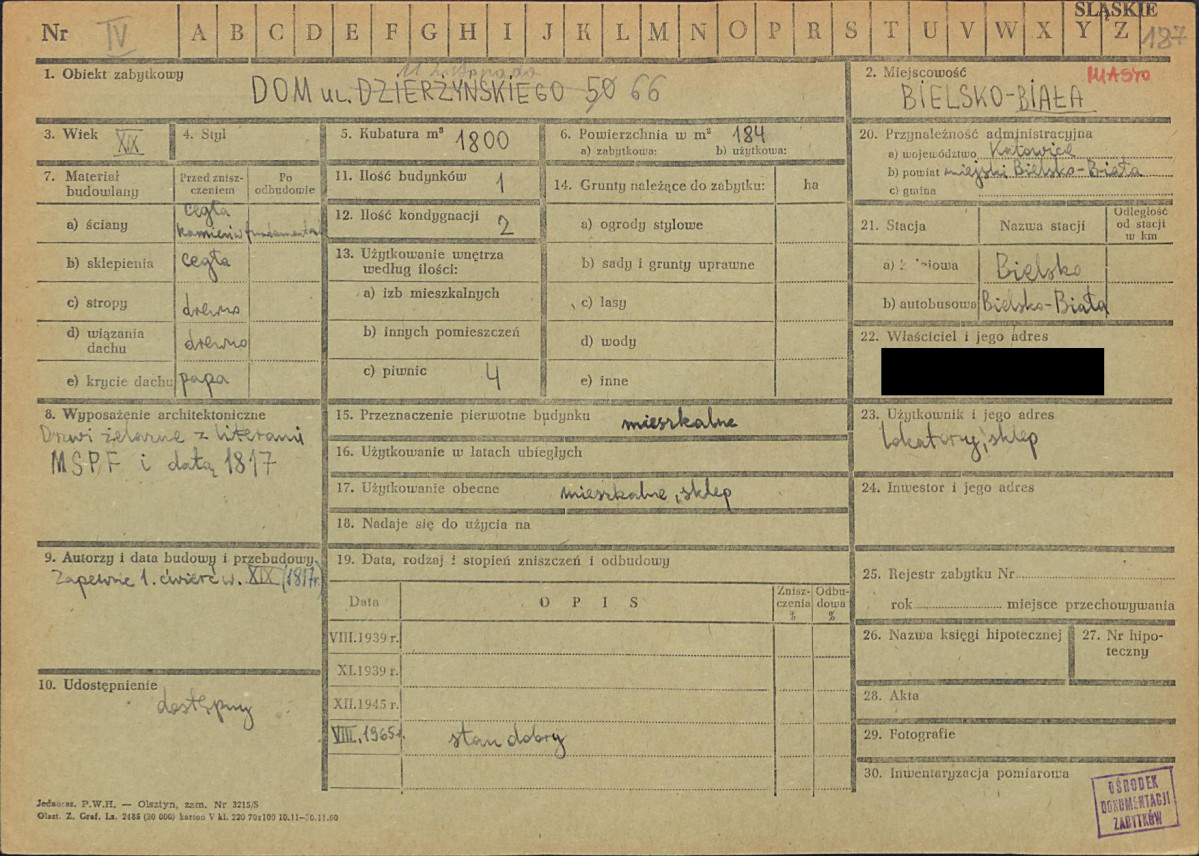 Nr IV A B C D E F G H I J K L M N O P R S T U V W X Y Z 187
ŚLĄSKIE
1. Obiekt zabytkowy
11 Listopada
DOM ul. DZIERŻYŃSKIEGO 50 66
2. Miejscowość MIASTO
BIELSKO-BIAŁA
3. Wiek XIX
4. Styl
5. Kubatura m³ 1800
6. Powierzchnia w m² 184
a) zabytkowa: b) użytkowa:
20. Przynależność administracyjna
a) województwo Katowice
b) powiat miejski Bielsko-Biała
c) gmina
7. Materiał budowlany
Przed zniszczeniem
Po odbudowie
a) ściany cegła
kamień w fundamentach
b) sklepienia cegła
c) stropy drewno
d) wiązania dachu drewno
e) krycie dachu papa
11. Ilość budynków 1
12. Ilość kondygnacji 2
13. Użytkowanie wnętrza
według ilości:
a) izb mieszkalnych
b) innych pomieszczeń
c) piwnic 4
14. Grunty należące do zabytku: ha
a) ogrody stylowe
b) sady i grunty uprawne
c) lasy
d) wody
e) inne
21. Stacja
Nazwa stacji
Odległość od stacji w km
a) Bielsko
b) autobusowa Bielsko-Biała
22. Właściciel i jego adres
8. Wyposażenie architektoniczne
Drzwi żelazne z literami
MSPF i datą 1817
15. Przeznaczenie pierwotne budynku mieszkalne
16. Użytkowanie w latach ubiegłych
17. Użytkowanie obecne mieszkalne, sklep
18. Nadaje się do użycia na
23. Użytkownik i jego adres
lokatorzy, sklep
24. Inwestor i jego adres
9. Autorzy i data budowy i przebudowy
Zapewne 1. ćwierć w. XIX (1817r.)
19. Data, rodzaj i stopień zniszczeń i odbudowy
Data
OPIS
Zniszczenia %
Odbudowa %
VIII.1939 r.
XI.1939 r.
XII.1945 r.
VIII.1965r. stan dobry
25. Rejestr zabytku Nr
rok miejsce przechowywania
26. Nazwa księgi hipotecznej
27. Nr hipoteczny
28. Akta
29. Fotografie
30. Inwentaryzacja pomiarowa
10. Udostępnienie
dostępny
Jednocz. P.W.H. — Olsztyn, zam. Nr 3215/S
Olszt. Z. Graf. Lz. 2485 (20 000) karton V kl. 220 70x109 10.11—30.11.60
OŚRODEK
DOKUMENTACJI
ZABYTKÓW